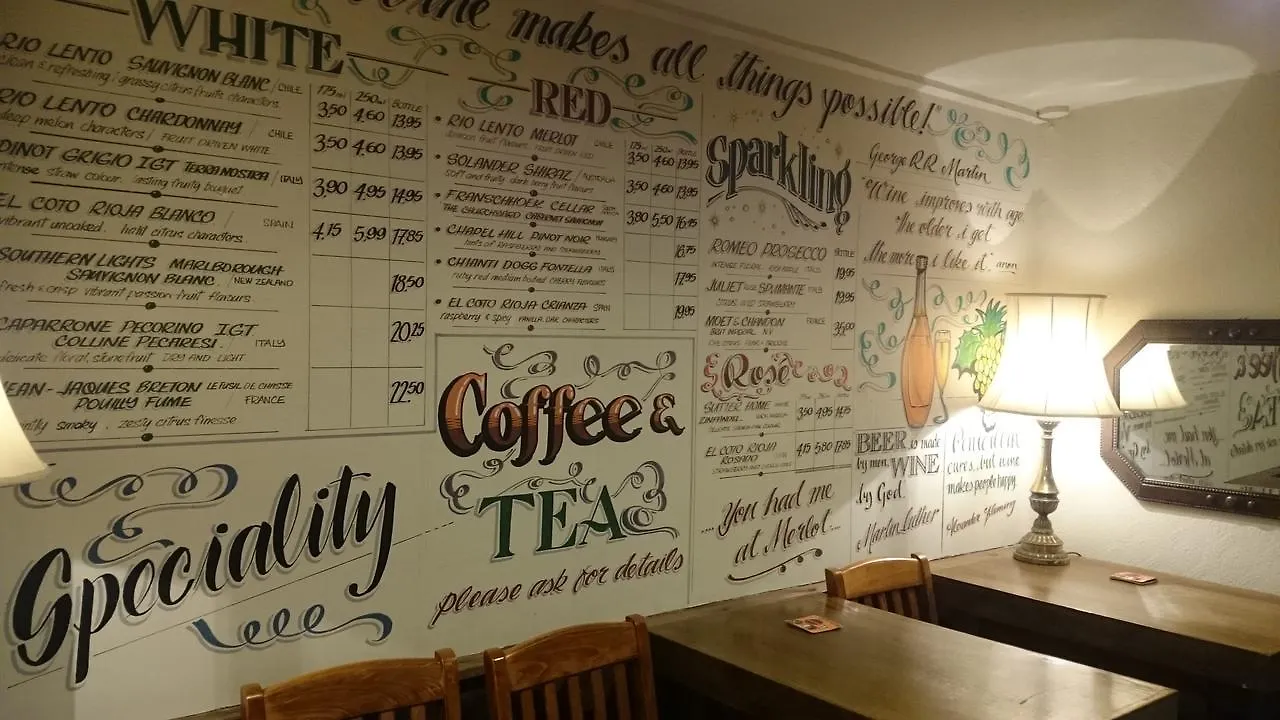 Wine makes all things possible!"
George R.R. Martin
WHITE
175ml 250ml BOTTLE
RIO LENTO SAUVIGNON BLANC / CHILE 3,50 4,60 13,95
clean & refreshing / grassy citrus fruits characters
RIO LENTO CHARDONNAY / CHILE 3,50 4,60 13,95
deep melon characters / FRUIT DRIVEN WHITE
PINOT GRIGIO IGT TERRA NOSTRA / ITALY 3,90 4,95 14,95
intense straw colour. lasting fruity bouquet
EL COTO RIOJA BLANCO / SPAIN 4,15 5,99 17,85
vibrant unoaked. citrus characters
SOUTHERN LIGHTS MARLBOROUGH
SAUVIGNON BLANC / NEW ZEALAND 18,50
fresh & crisp vibrant passion fruit flavours
CAPARRONE PECORINO IGT
COLLINE PECARESI / ITALY 20,25
delicate floral, stonefruit DRY AND LIGHT
JEAN-JAQUES BRETON LE FUSIL DE CHASSE
POUILLY FUME / FRANCE 22,50
smoky. zesty citrus finesse
RED
175ml 250ml BOTTLE
RIO LENTO MERLOT CHILE 3,50 4,60 13,95
fruit flavours. FRUIT DRIVEN RED
SOLANDER SHIRAZ / AUSTRALIA 3,50 4,60 13,95
Soft and fruity dark berry fruit flavours
FRANSCHHOEK CELLAR 3,80 5,50 16,45
THE CHURCHYARD CABERNET SAUVIGNON
CHAPEL HILL PINOT NOIR 16,75
hints of RASPBERRIES AND
CHIANTI DOGG FONTELLA 17,95
ruby red medium bodied CHERRY FLAVOURS
EL COTO RIOJA CRIANZA SPAIN 19,95
raspberry & spicy VANILLA OAK CHARACTERS
Sparkling
BOTTLE
ROMEO PROSECCO 19,95
INTENSE FLORAL ITALY
JULIET SPUMANTE ITALY 19,95
STRAWBERRY
MOET & CHANDON FRANCE 35,00
BRUT IMPERIAL N.V
Rosé
SUTTER HOME 3,50 4,95 14,75
ZINFANDEL
EL COTO RIOJA 4,15 5,80 17,85
ROSADO
"Wine improves with age.
The older i get
the more i like it". anon
Speciality
Coffee &
TEA
please ask for details
....You had me
at Merlot....
BEER is made
by men, WINE
by God.
Martin Luther
Penicillin
cures, but wine
makes people happy.
Alexander Fleming